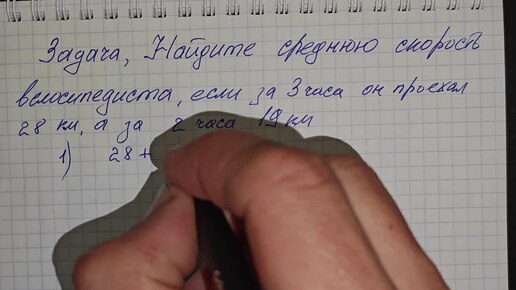 Задача, Найдите среднюю скорость
велосипедиста, если за 3 часа он проехал
28 км, а за 2 часа 19 км
1) 28 +